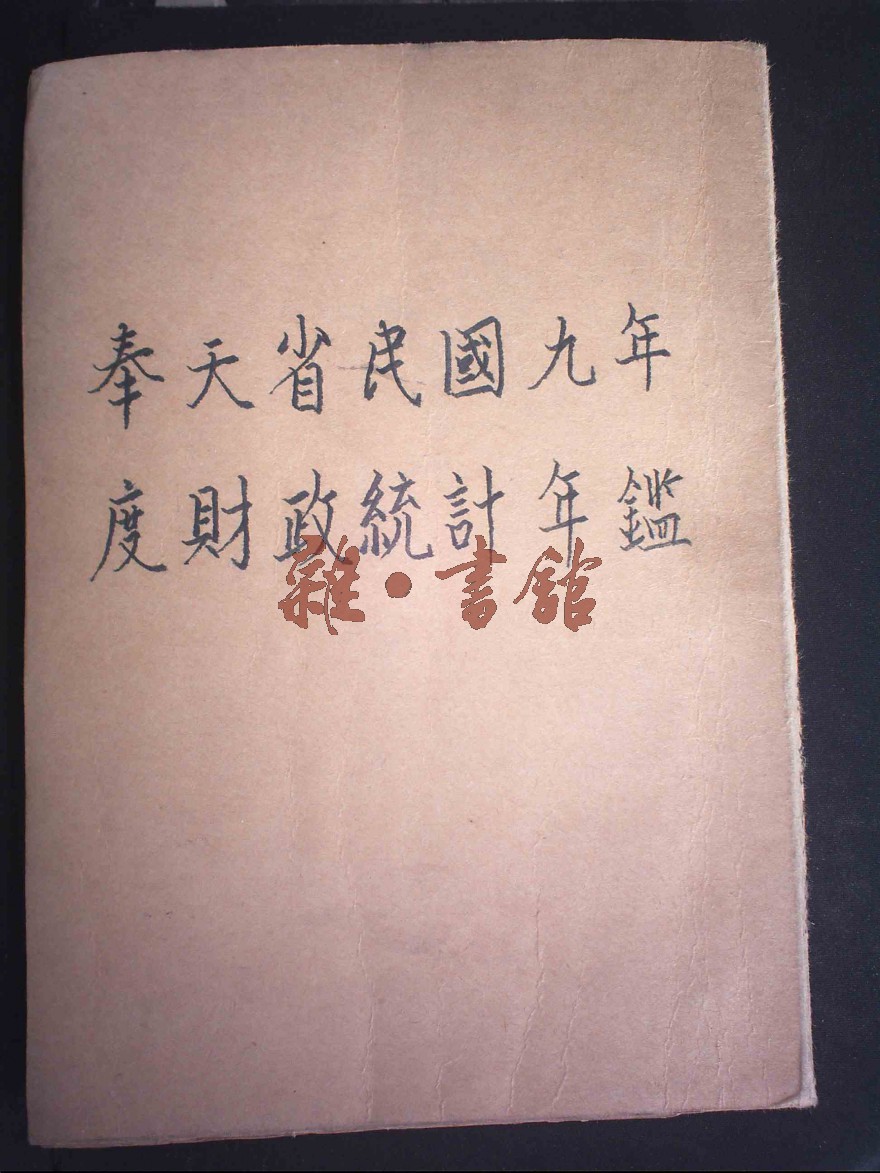 奉天省民國九年
度財政統計年鑑
雜·書館